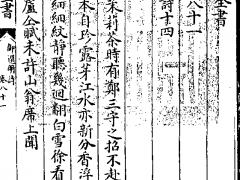 全書
八十一
詩十四
茉莉茶時有鄭三守之招不赴
本自珍露芽江水亦新分香浮
細細紋靜聽迴翻白雪徐看
盧仝賦未許山翁席上聞
御選明詩 卷八十一
全書